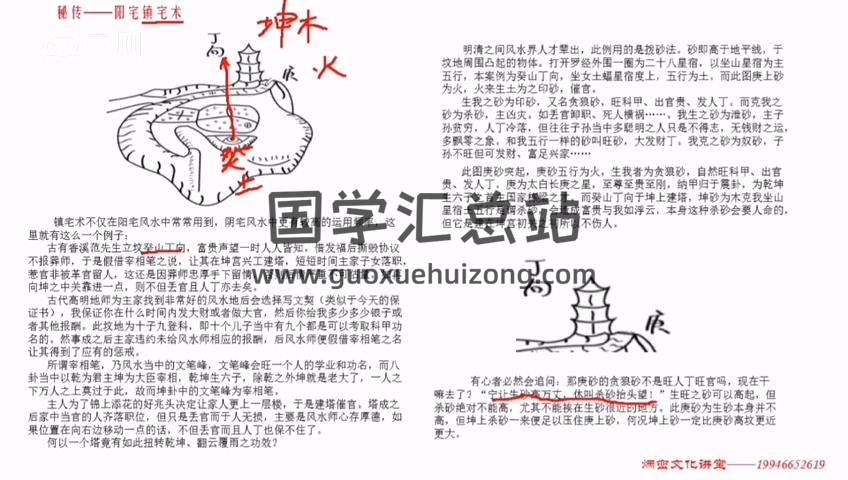 秘传——阳宅镇宅术
坤木
火
丁向
辰
癸
土
镇宅术不仅在阳宅风水中常常用到，阴宅风水中更有较高的运用频率，这
里就有这么一个例子：
古有香溪范先生立坟癸山丁向，富贵声望一时人人皆知。借发福后撕毁协议
不报葬师，于是假借宰相笔之说，让其在坤宫兴工建塔，短短时间主家子女落职，
惹官非被革官留人，这还是因葬师忠厚手下留情
向坤之中关靠进一点，则不但丢官且人丁亦去矣。
古代高明地师为主家找到非常好的风水地后会选择写文契（类似于今天的保
证书），我保证你在什么时间内发大财或者做大官，然后你给我多少多少银子或
者其他报酬。此坟地为十子九登科，即十个儿子当中有九个都是可以考取科甲功
名的。然事成之后主家违约未给风水师相应的报酬，后风水师便假借宰相笔之名
让其得到了应有的惩戒。
所谓宰相笔，乃风水当中的文笔峰，文笔峰会旺一个人的学业和功名，而八
卦当中以乾为君主坤为大臣宰相，乾坤生六子，除乾之外坤就是老大了，一人之
下万人之上莫过于此，故而坤卦中的文笔峰为宰相笔。
主人为了锦上添花的好兆头决定让家人更上一层楼，于是建塔催官。塔成之
后家中当官的人齐落职位，但只是丢官而于人无损，主要是风水师心存厚德，如
果位置在向右边移动一点的话，不但丢官而且人丁也保不住了。
何以一个塔竟有如此扭转乾坤、翻云覆雨之功效？
明清之间风水界人才辈出，此例用的是拨砂法。砂即高于地平线，于
坟地周围凸起的物体。打开罗经外围一圈为二十八星宿，以坐山星宿为主
五行，本案例为癸山丁向，坐女土蝠星宿度上，五行为土。而此图庚上砂
为火，火来生土为之印砂，催官。
生我之砂为印砂，又名贪狼砂，旺科甲、出官贵、发人丁。而克我之
砂为杀砂，主凶灾。如丢官卸职、死人横祸……。我生之砂为泄砂，主子
孙贫穷，人丁冷落，但往往子孙当中多聪明之人只是不得志，无钱财之运，
多飘零之象。和我五行一样的砂叫旺砂，大发财丁。我克之砂为奴砂，子
孙不旺但可发财、富足兴家……
此图庚砂突起，庚砂五行为火，生我者为贪狼砂，自然旺科甲、出官
贵、发人丁。庚为太白长庚之星，至尊至贵至刚，纳甲归于震卦，为乾坤
生六子之首主国家栋梁之才。而癸山丁向于坤上建塔，坤砂为木克我坐山
星宿土五行是谓杀砂，会造成富贵与我如浮云，本身这种杀砂会要人命的，
但它是建在坤宫初爻之初所以不伤人。
国学汇总站
www.guoxuehuizong.com
丁向
辰
有心者必然会追问：那庚砂的贪狼砂不是旺人丁旺官吗，现在干
嘛去了？“宁让生砂高万丈，休叫杀砂抬头望！”生旺之砂可以高起，但
杀砂绝对不能高，尤其不能挨在生砂很近的地方。此庚砂为生砂本身并不
高，但坤上杀砂一来便足以压住庚上砂，何况坤上砂一定比庚砂高坟更近
更大。
文化讲堂——19946652619